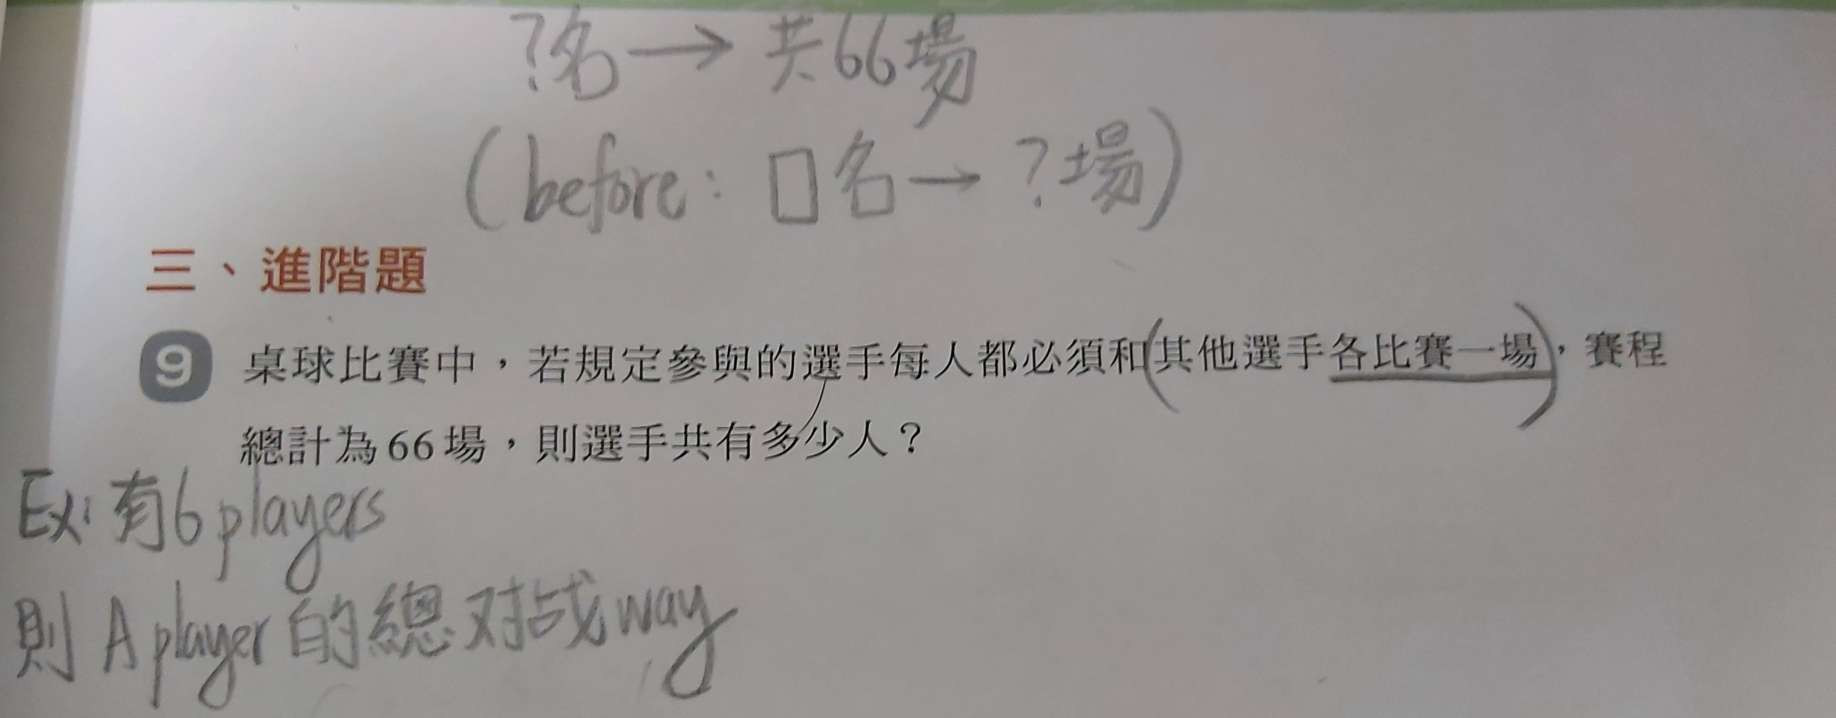 ?名→共66場
(before: □名→?場)
三、進階題
9 桌球比賽中,若規定參與的選手每人都必須和(其他選手各比賽一場),賽程
總計為66場,則選手共有多少人?
Ex: 有6players
則A player的總对战way